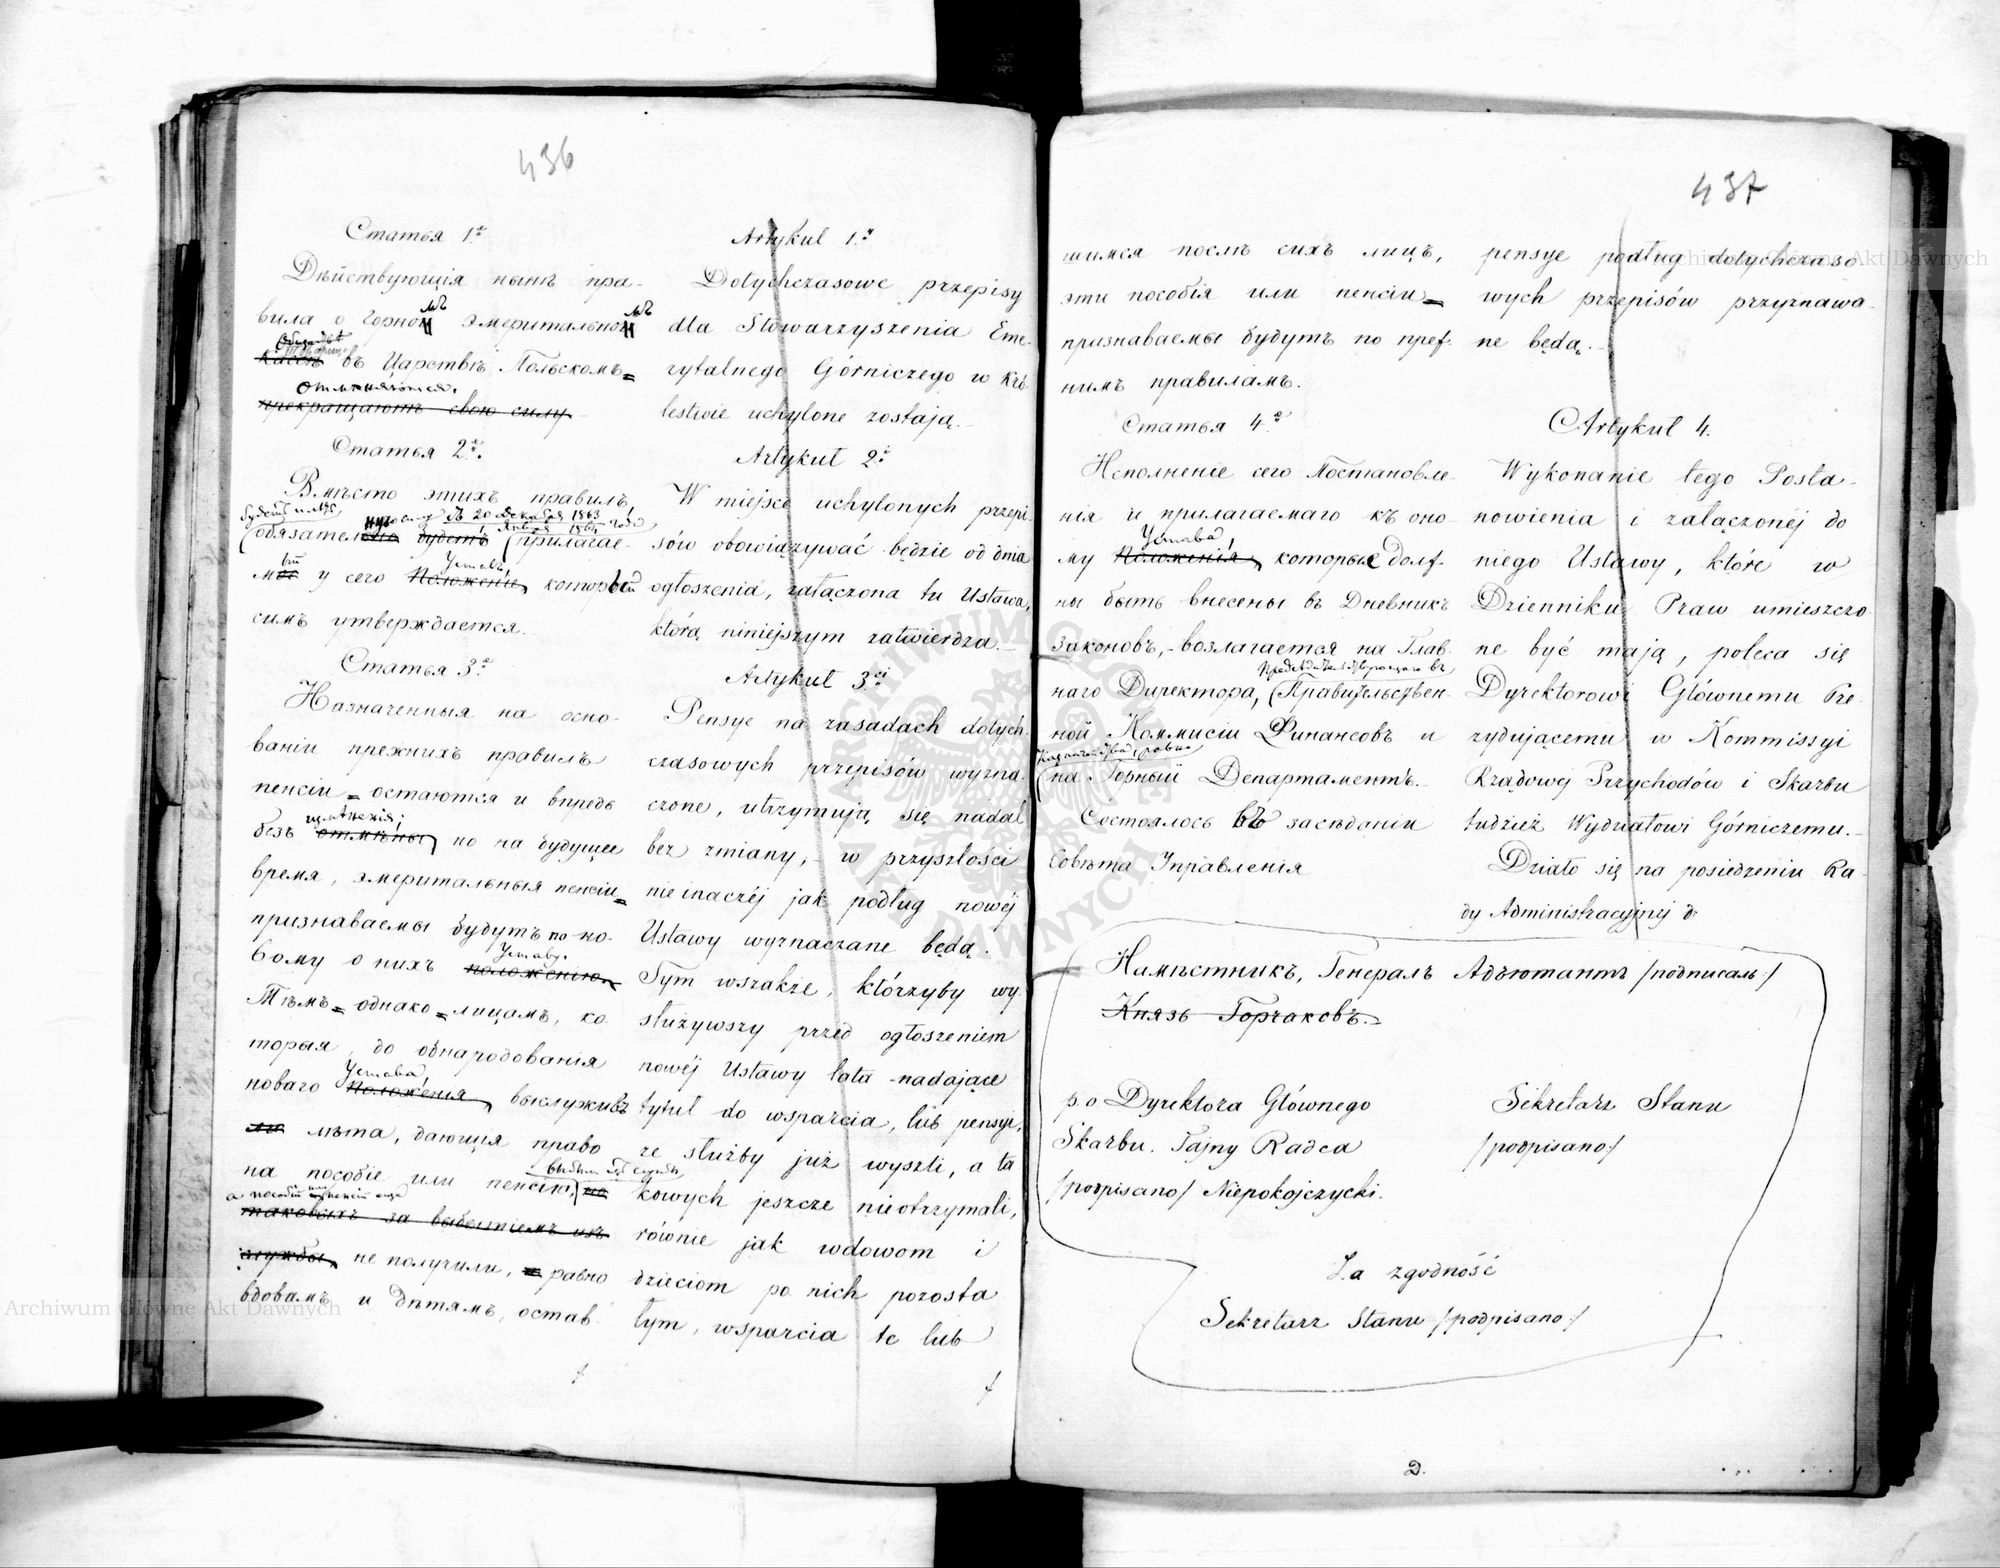 436
Статья 1.я
Дѣйствующія нынѣ пра-
вила о Горномъ Эмеритальномъ
Обществѣ
Кассѣ въ Царствѣ Польскомъ
отмѣняются.
прекращаютъ свою силу.
Статья 2.я
Вмѣсто этихъ правилъ,
будетъ имѣть
силу съ 20 Декабря 1863
Января 1864 года
обязательно будетъ прилагае-
Уставъ,
мый у сего Положеніе, который
симъ утверждается.
Статья 3.я
Назначенныя на осно-
ваніи прежнихъ правилъ
пенсіи остаются и впредь
измѣненія;
безъ отмѣны, но на будущее
время, эмеритальныя пенсіи
признаваемы будутъ по но-
Уставу.
вому о нихъ положенію.
Тѣмъ однако лицамъ, ко
торыя, до обнародованія
Устава
новаго Положенія, выслуживъ
ли лѣта, дающія право
на пособіе или пенсію, но
а пособій или пенсій еще
таковыхъ за выбытіемъ изъ
службы, не получили, равно
вдовамъ и дѣтямъ, остав
Artykuł 1.y
Dotychczasowe przepisy
dla Stowarzyszenia Eme-
rytalnego Górniczego w Kró-
lestwie uchylone zostają.
Artykuł 2.i
W miejsce uchylonych przepi-
sów obowiązywać będzie od dnia
ogłoszenia, załączona tu Ustawa,
którą niniejszym zatwierdza.
Artykuł 3.ci
Pensye na zasadach dotych-
czasowych przepisów wyzna-
czone, utrzymują się nadal
bez zmiany, w przyszłości
nie inaczéj jak podług nowéj
Ustawy wyznaczane będą.
Tym wszakże, którzyby wy
służywszy przed ogłoszeniem
nowéj Ustawy lata nadające
tytuł do wsparcia, lub pensyi,
ze służby już wyszli, a ta
kowych jeszcze nieotrzymali,
równie jak wdowom i
dzieciom po nich pozosta
łym, wsparcia te lub
437
шимся послѣ сихъ лицъ,
эти пособія или пенсіи
признаваемы будутъ по преж-
нимъ правиламъ.
Статья 4.я
Исполненіе сего Постановле-
нія и прилагаемаго къ оно-
Устава
му Положенія, которые долж-
ны быть внесены въ Дневникъ
Законовъ, возлагается на Глав-
Предсѣдательствующаго въ
наго Директора, Правительствен-
ной Коммисіи Финансовъ и
Казначейства, равно
на Горный Департаментъ.
Состоялось въ засѣданіи
Совѣта Управленія
pensye podług dotychczaso
wych przepisów przyznawa
ne będą.
Artykuł 4.
Wykonanie tego Posta-
nowienia i załączonéj do
niego Ustawy, które w
Dzienniku Praw umieszczo
ne być mają, poleca się
Dyrektorowi Głównemu Pre-
zydującemu w Kommissyi
Rządowéj Przychodów i Skarbu
tudzież Wydziałowi Górniczemu.
Działo się na posiedzeniu Ra-
dy Administracyjnéj d.
Намѣстникъ, Генералъ Адъютантъ /подписалъ/
Князь Горчаковъ.
p.o. Dyrektora Głównego
Skarbu. Tajny Radca
/podpisano/ Niepokojczycki.
Sekretarz Stanu
/podpisano/
Za zgodność
Sekretarz Stanu /podpisano/
2.
Archiwum Główne Akt Dawnych
Archiwum Główne Akt Dawnych
ARCHIWUM GŁÓWNE AKT DAWNYCH